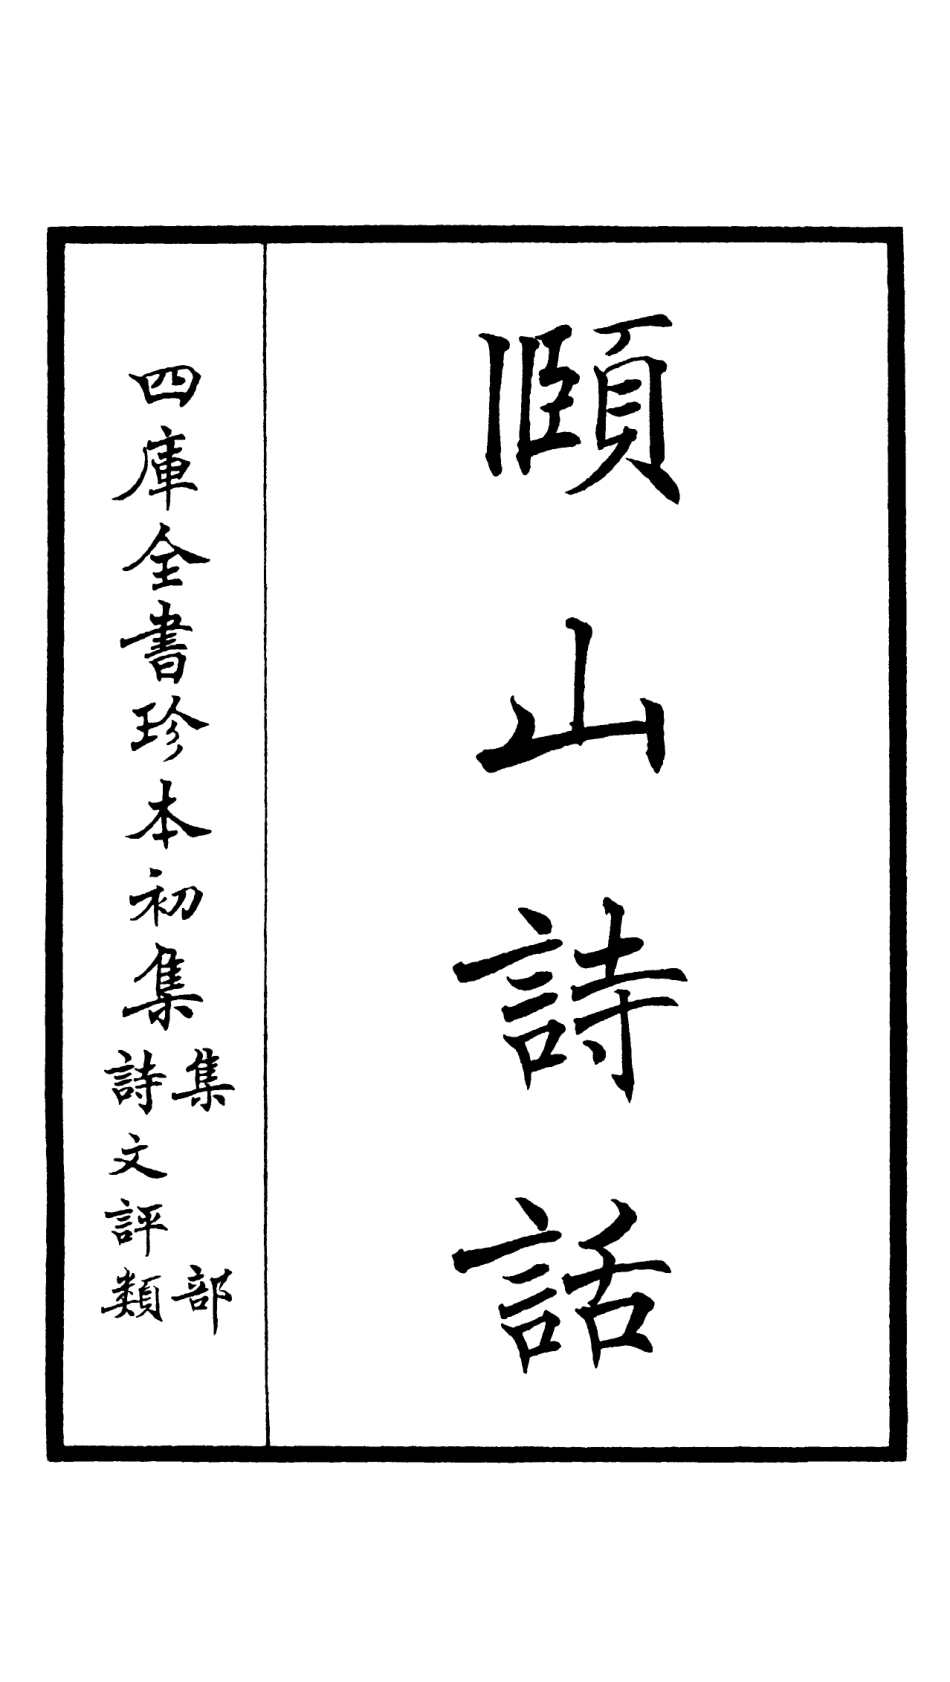 頤山詩話
四庫全書珍本初集
集部
詩文評類